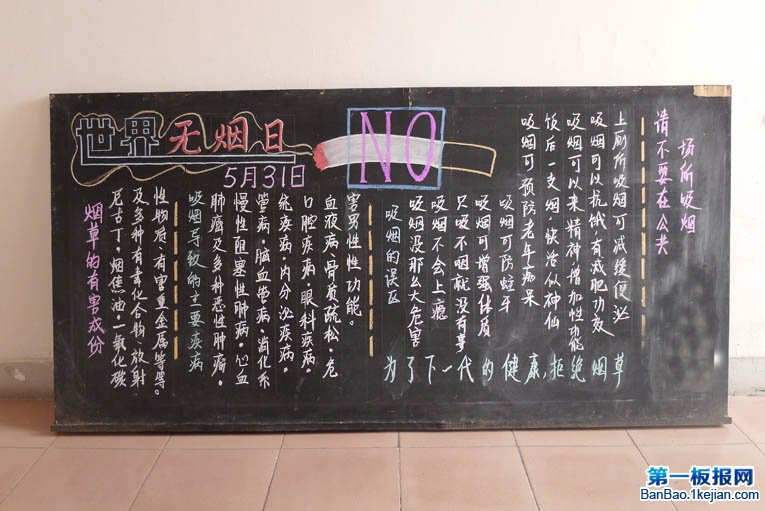 世界无烟日
5月31日
NO
烟草的有害成份
尼古丁·烟焦油·一氧化碳
及多种有毒化合物、放射
性物质、有害重金属等等。
吸烟导致的主要疾病
肺癌及多种恶性肿瘤·
慢性阻塞性肺病·心血
管病·脑血管病·消化系
统疾病·内分泌疾病·
口腔疾病·眼科疾病·
血液病、骨质疏松·危
害男性性功能。
吸烟的误区
吸烟没那么大危害
吸烟不会上瘾
只吸不咽就没有事
吸烟可增强体质
吸烟可防蛀牙
吸烟可预防老年痴呆
饭后一支烟·快活似神仙
吸烟可以来精神增加性功能
吸烟可以抗饿,有减肥功效
上厕所吸烟可减缓便泌
请不要在公共
场所吸烟
为了下一代的健康,拒绝烟草
第一板报网
BanBao.1kejian.com